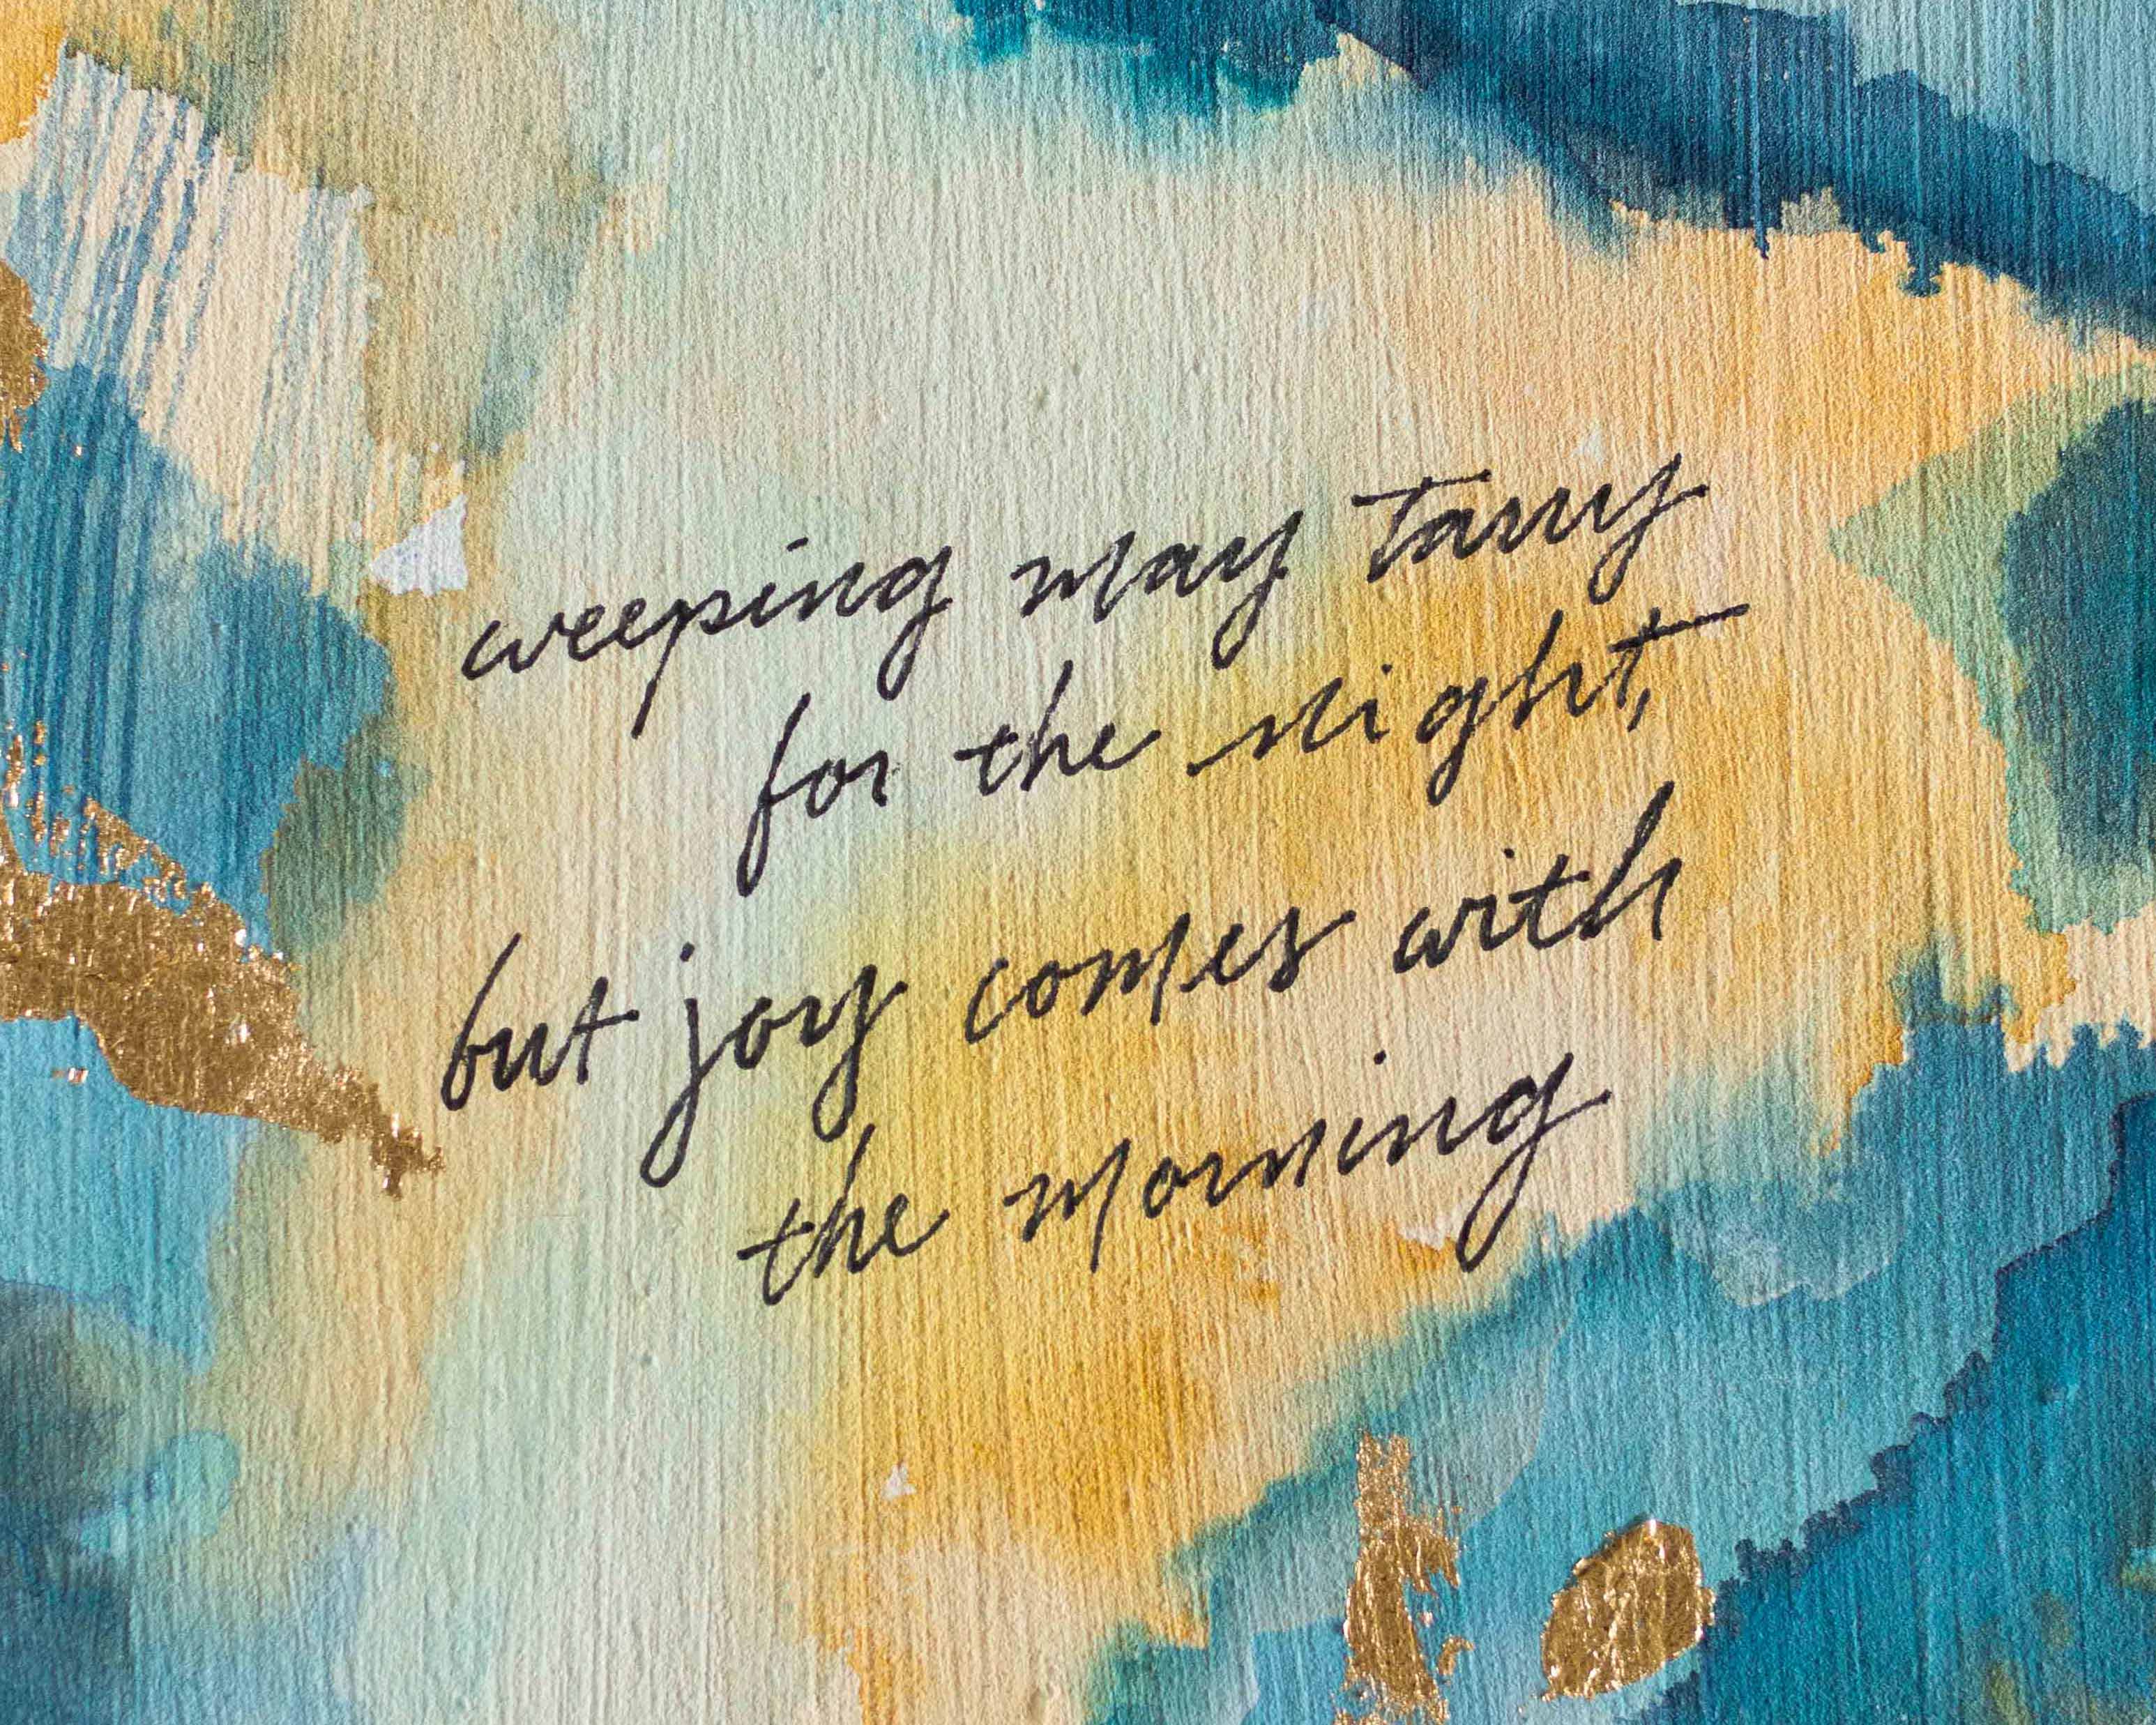 weeping may tarry
for the night,
but joy comes with
the morning